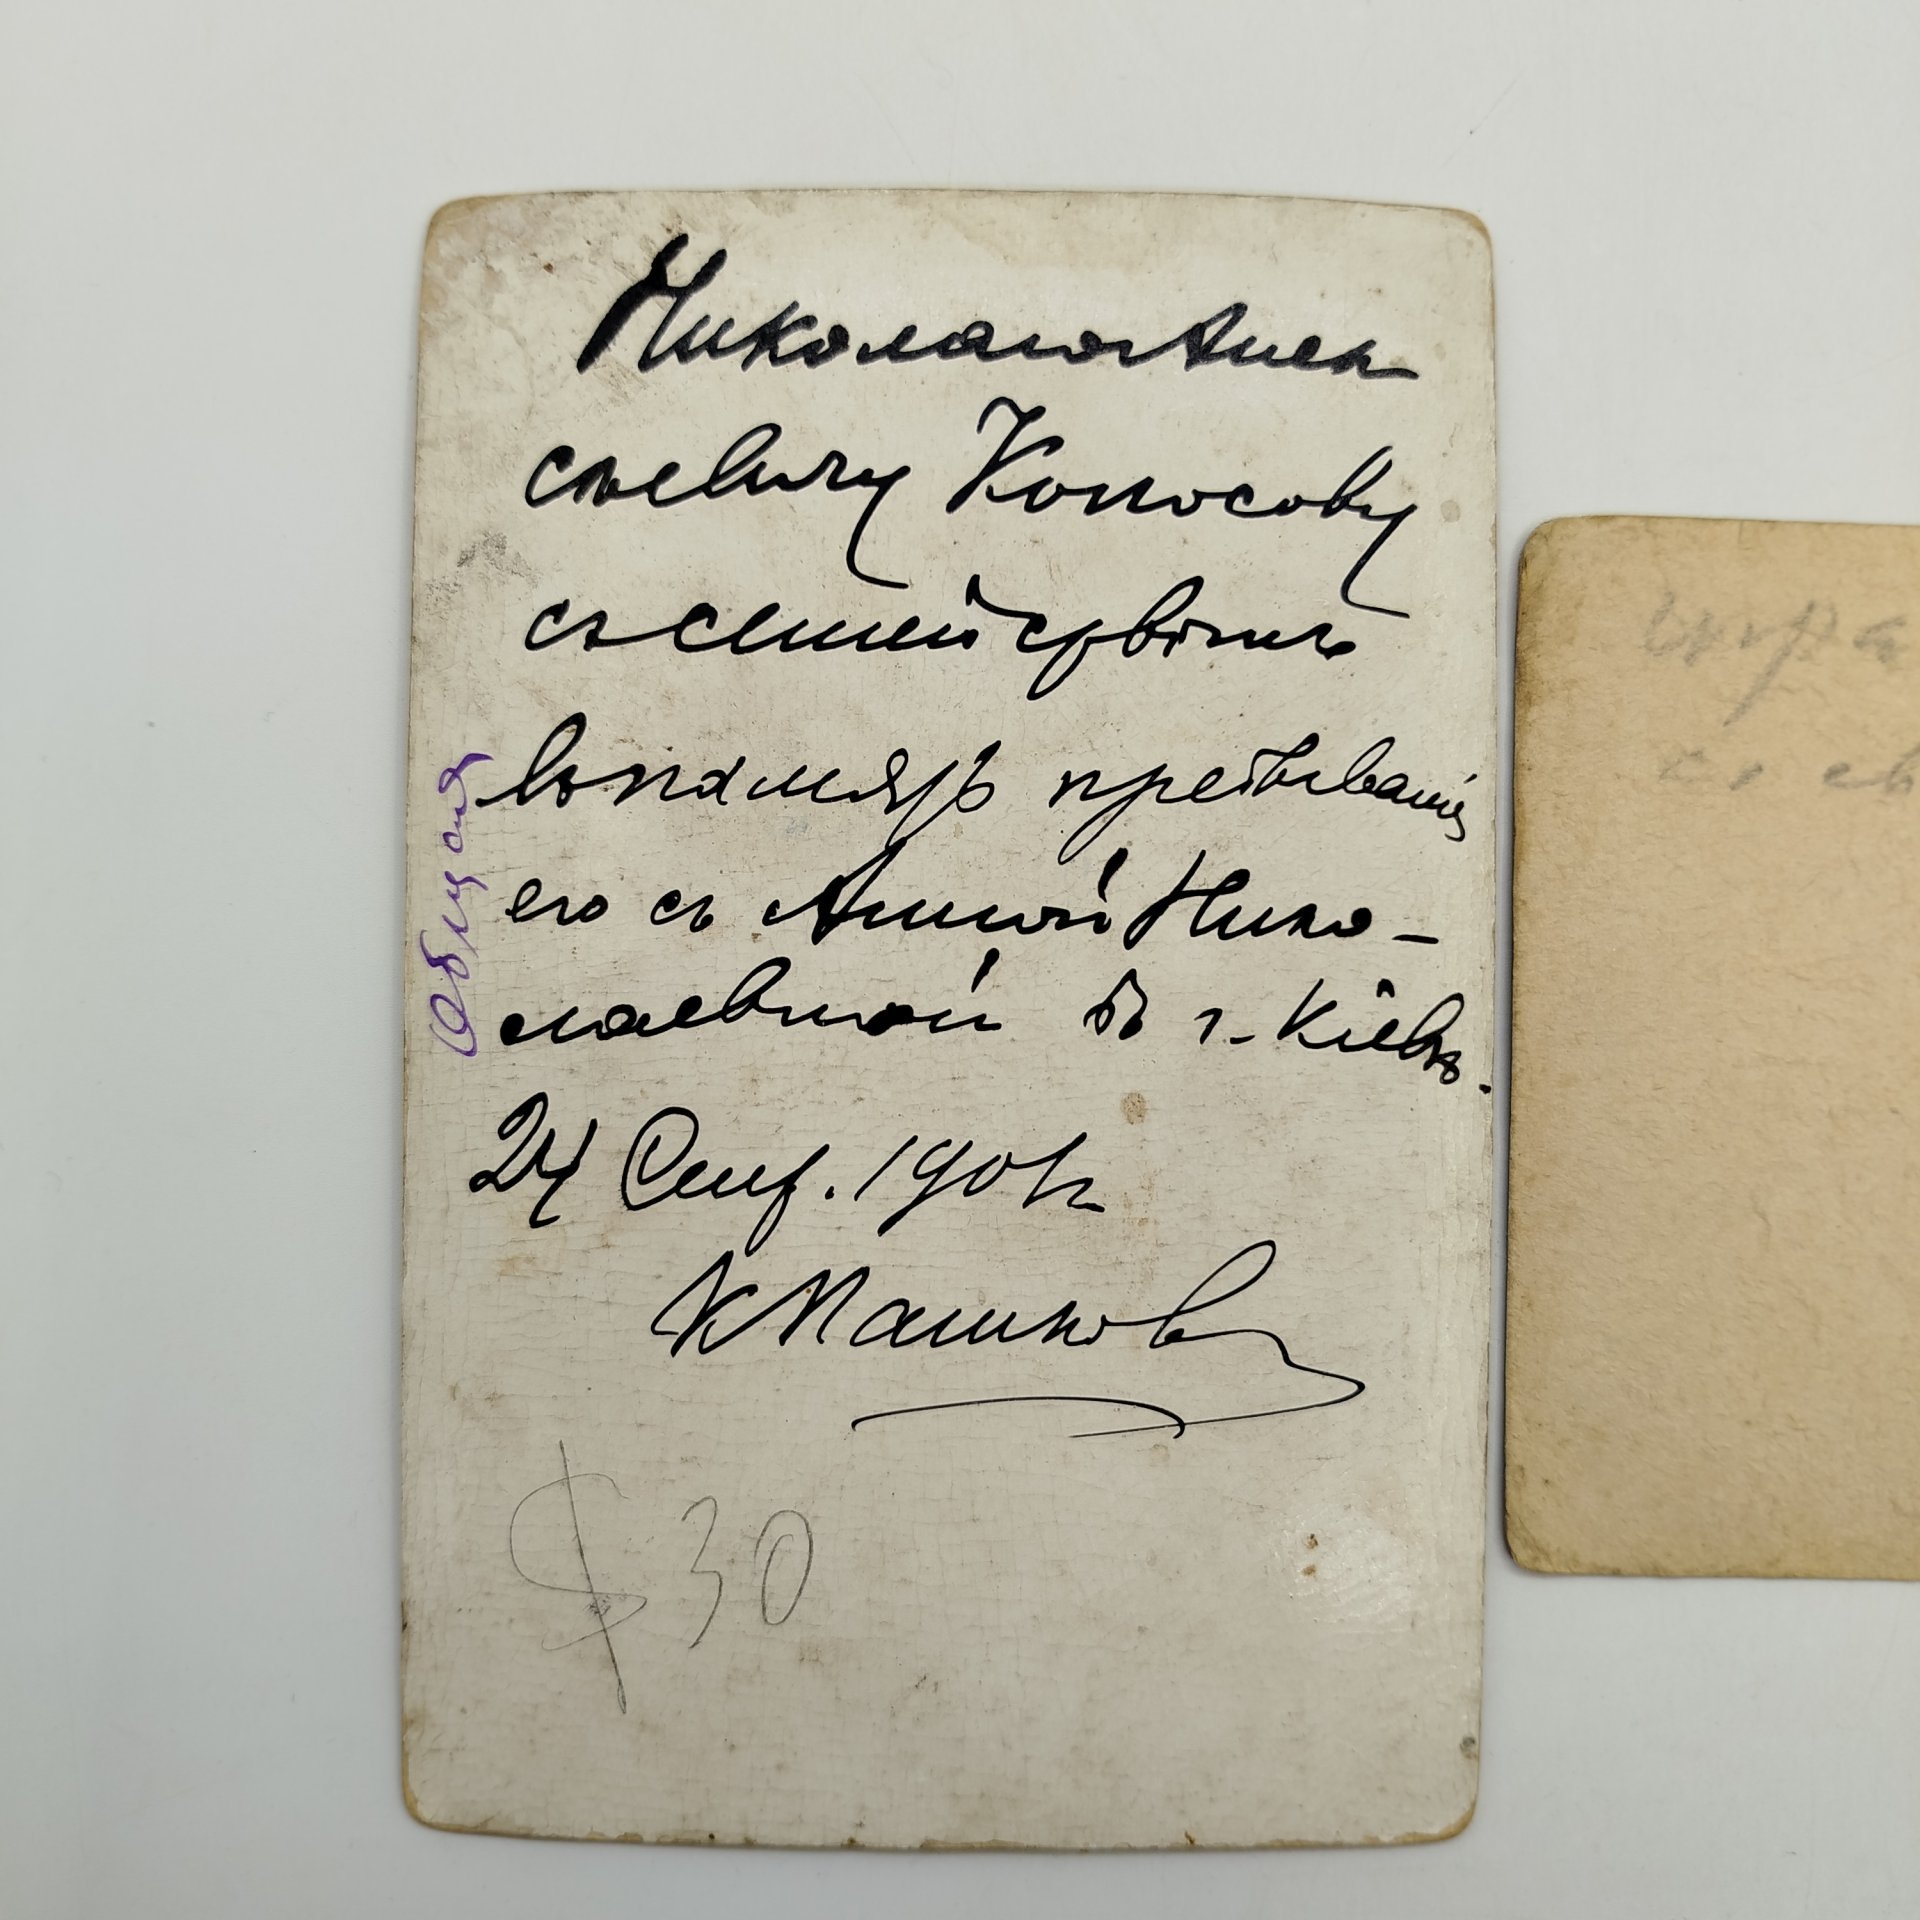 Николаю Алек
сѣевичу Копосову
съ семействомъ
въ память пребыванія
его съ Анной Нико-
лаевной въ г. Кіевѣ.
24 Сент. 1901 г.
К Пашков
$30